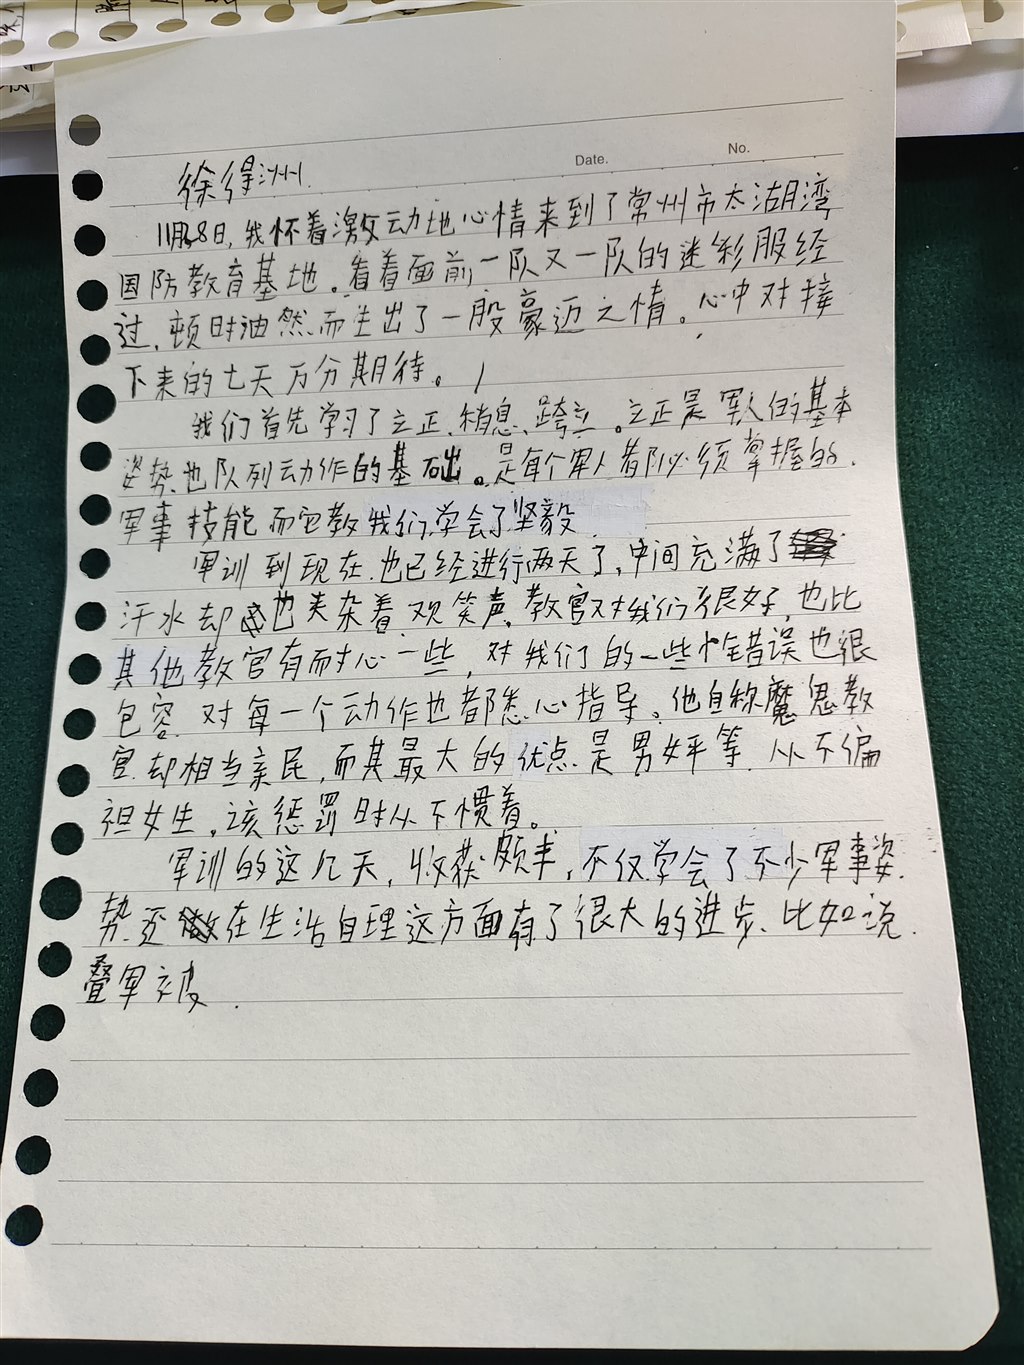 Date.
No.
徐得洲.
11月8日,我怀着激动地心情来到了常州市太湖湾
国防教育基地。看着面前一队又一队的迷彩服经
过,顿时油然而生出了一股豪迈之情。心中对接
下来的七天万分期待。
我们首先学习了立正、稍息、跨立。立正是军人的基本
姿势,也队列动作的基础。是每个军人都必须掌握的
军事技能而它教我们学会了坚毅
军训到现在,也已经进行两天了,中间充满了
汗水却也夹杂着欢笑声。教官对我们很好,也比
其他教官有耐心一些,对我们的一些小错误也很
包容,对每一个动作也都悉心指导。他自称魔鬼教
官,却相当亲民,而其最大的优点是男女平等,从不偏
袒女生,该惩罚时从不惯着。
军训的这几天,收获颇丰,不仅学会了不少军事姿
势,还在生活自理这方面有了很大的进步、比如说
叠军被.